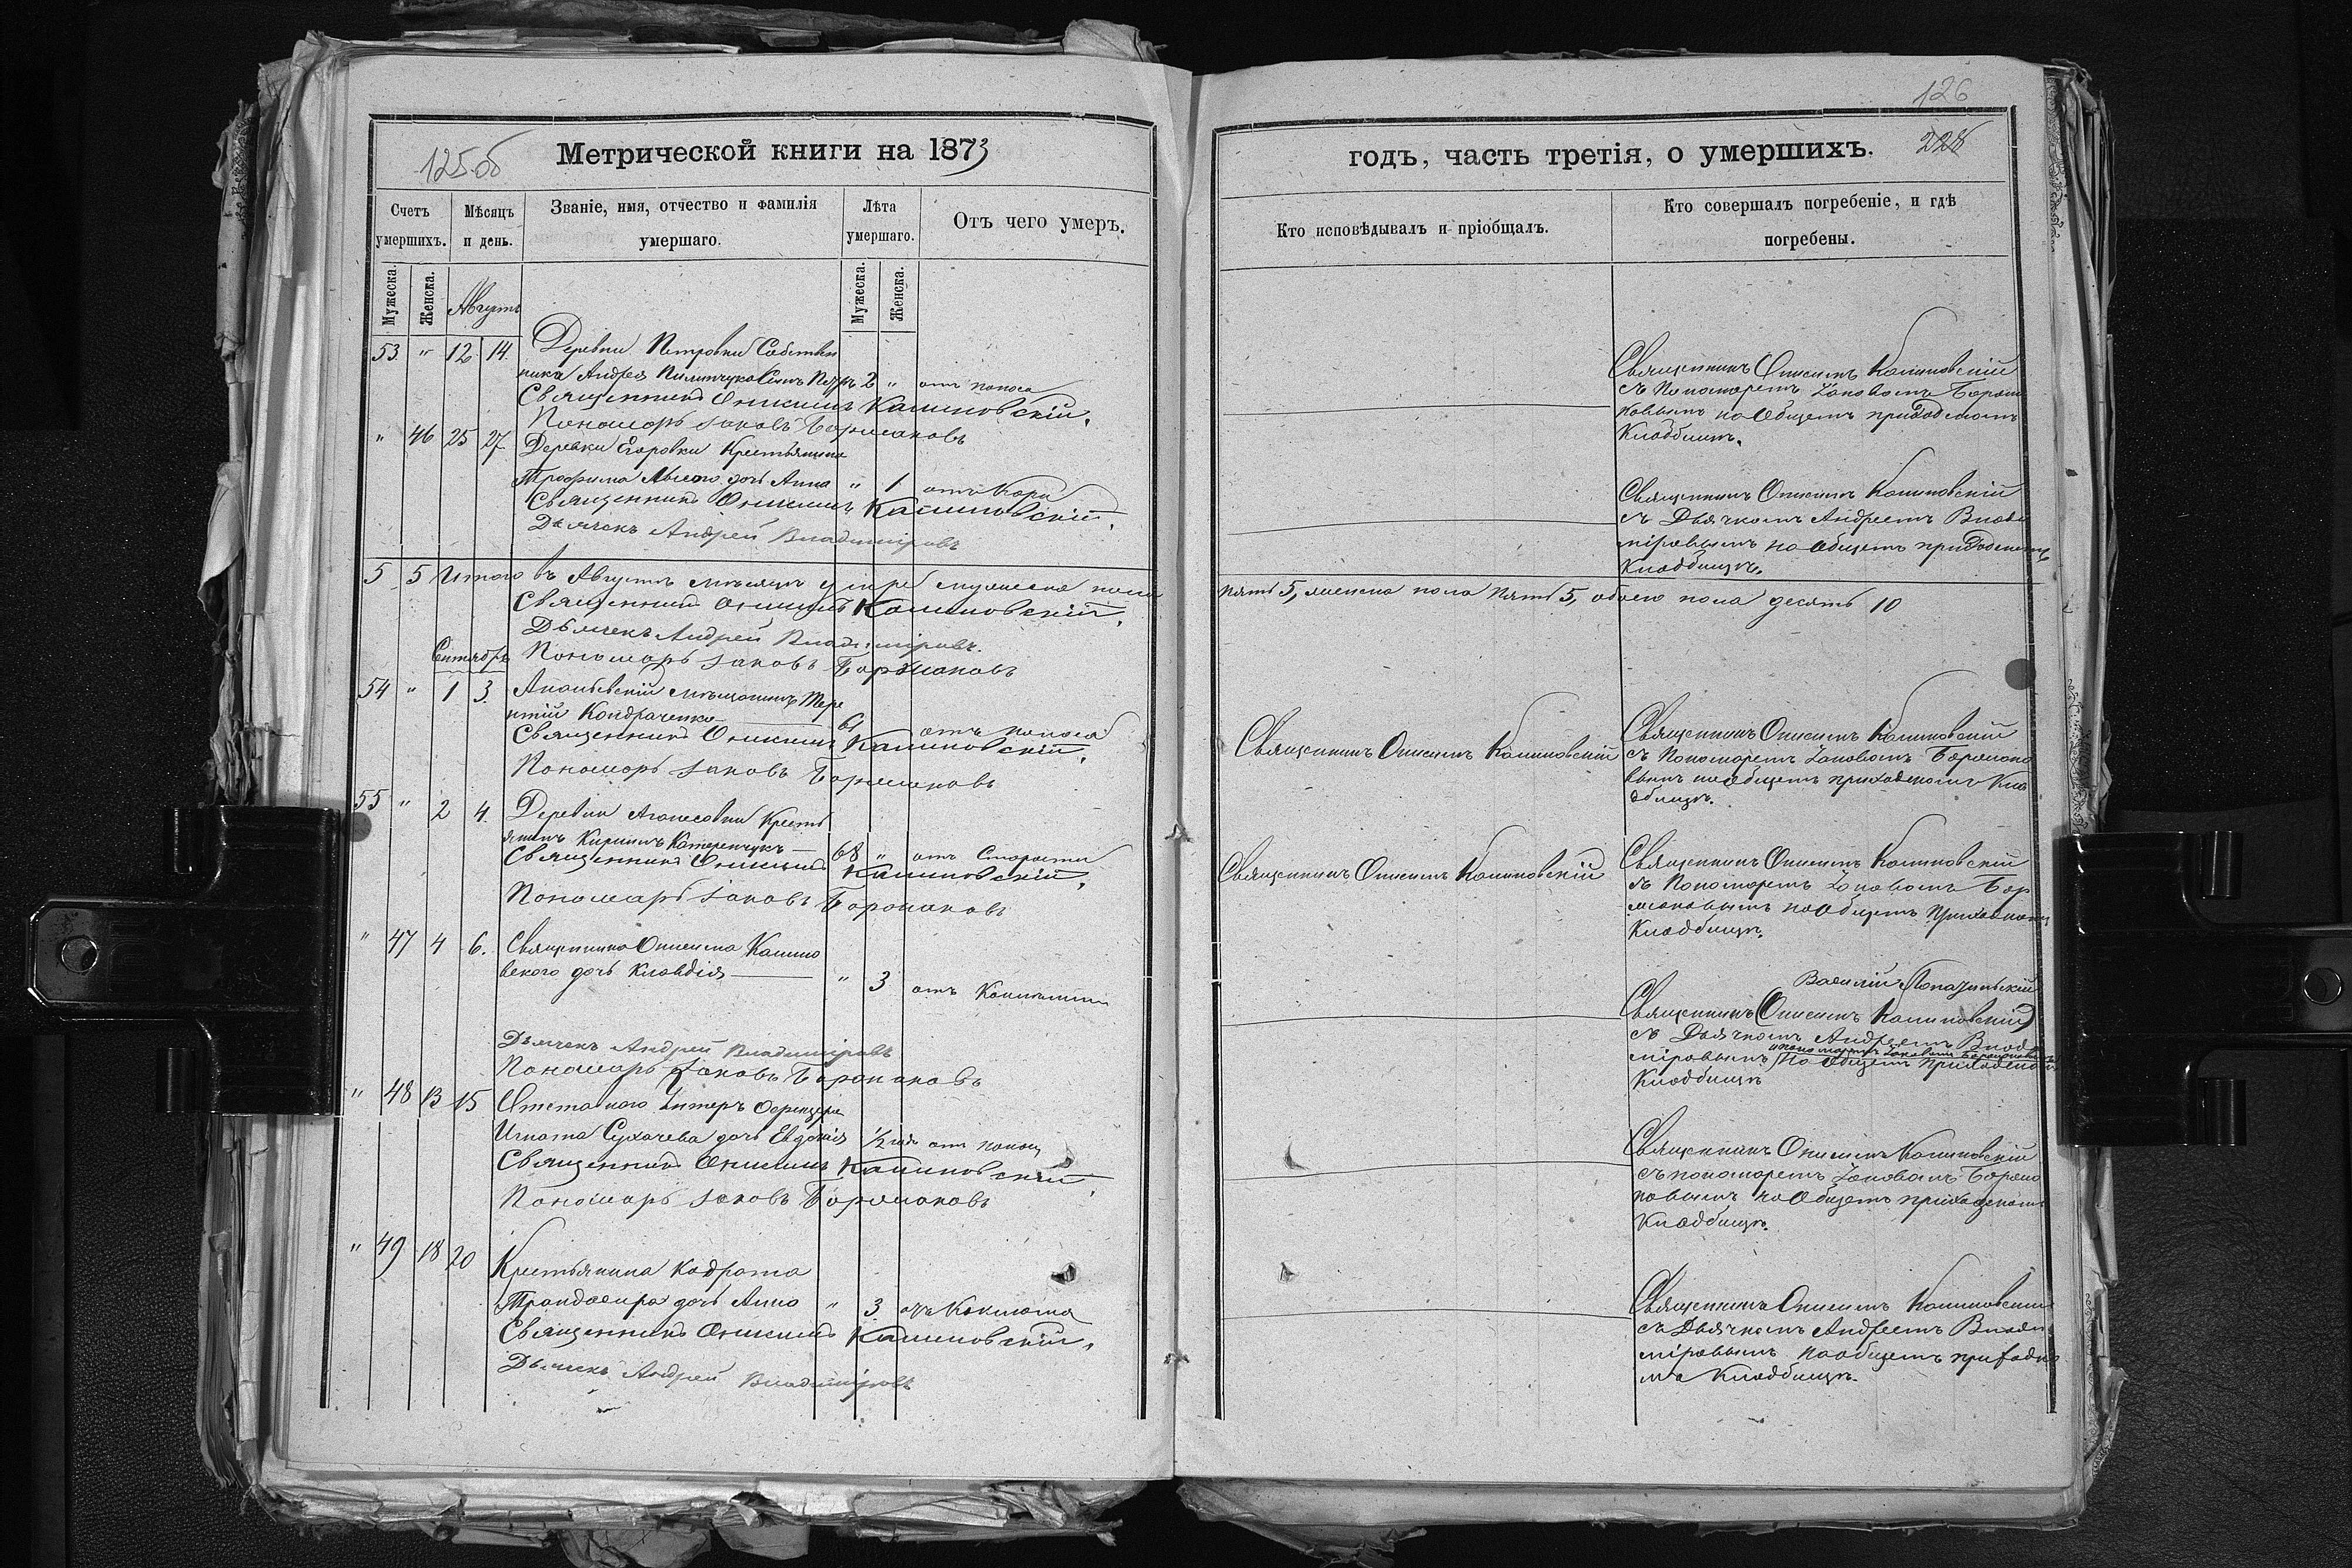 125об
Метрической книги на 1873
Счетъ умершихъ.
Мѣсяцъ и день.
Званіе, имя, отчество и фамилія умершаго.
Лѣта умершаго.
Отъ чего умеръ.
Мужеска.
Женска.
Августъ
Мужеска.
Женска.
53 " 12 14. Деревни Петровки Собствен
ника Андрея Сынъ Петръ 2 " отъ поноса
Священникъ Онисимъ Калиновскій.
Пономарь Іаковъ
" 46 25 27 Деревни Егоровки Крестьянина
Трофима дочь Анна " 1 отъ Кори
Священникъ Онисимъ Калиновскій.
Дьячекъ Андрей Владиміровъ
5 5 Итого въ Августѣ мѣсяцѣ умре мужеска пола
Священникъ Онисимъ Калиновскій.
Дьячекъ Андрей Владиміровъ.
Пономарь Іаковъ
Сентябрь
54 " 1 3. Ананьевскій мѣщанинъ Тере
нтій Кондраченко 61 отъ поноса
Священникъ Онисимъ Калиновскій.
Пономарь Іаковъ
55 " 2 4. Деревни Крестъ
янинъ Кириллъ Катеренчукъ 68 " отъ Старости
Священникъ Онисимъ Калиновскій.
Пономарь Іаковъ
" 47 4 6. Священника Онисима Калино
вского дочь Клавдія " 3 отъ
Дьячекъ Андрей Владиміровъ
Пономарь Іаковъ
" 48 13 15 Отставного Унтеръ Офицера
Игната Сухачева дочь Евдокія 1/2 года отъ поноса
Священникъ Онисимъ Калиновскій.
Пономарь Іаковъ
" 49 18 20 Крестьянина Кодрата
дочь Анна " 3 отъ Коклюша
Священникъ Онисимъ Калиновскій.
Дьячекъ Андрей Владиміровъ
126
годъ, часть третія, о умершихъ.
228
Кто исповѣдывалъ и пріобщалъ.
Кто совершалъ погребеніе, и гдѣ погребены.
Священникъ Онисимъ Калиновскій
съ Пономаремъ Іаковомъ
на Общемъ приходскомъ
Кладбищѣ.
Священникъ Онисимъ Калиновскій
съ Дьячкомъ Андреемъ Влади
міровымъ на Общемъ приходскомъ
Кладбищѣ.
пять 5, женска пола пять 5, обоего пола десять 10
Священникъ Онисимъ Калиновскій
Священникъ Онисимъ Калиновскій
съ Пономаремъ Іаковомъ
вымъ на Общемъ приходскомъ Кла
дбищѣ.
Священникъ Онисимъ Калиновскій
Священникъ Онисимъ Калиновскій
съ Пономаремъ Іаковомъ
на Общемъ Приходскомъ
Кладбищѣ.
Василій
Священникъ (Онисимъ Калиновскій)
съ Дьячкомъ Андреемъ Влади
и пономаремъ Іаковомъ
міровымъ на Общемъ приходскомъ
Кладбищѣ
Священникъ Онисимъ Калиновскій
съ пономаремъ Іаковомъ
на Общемъ приходскомъ
Кладбищѣ.
Священникъ Онисимъ Калиновскій
съ Дьячкомъ Андреемъ Влади
міровымъ на общемъ приходско
мъ Кладбищѣ.